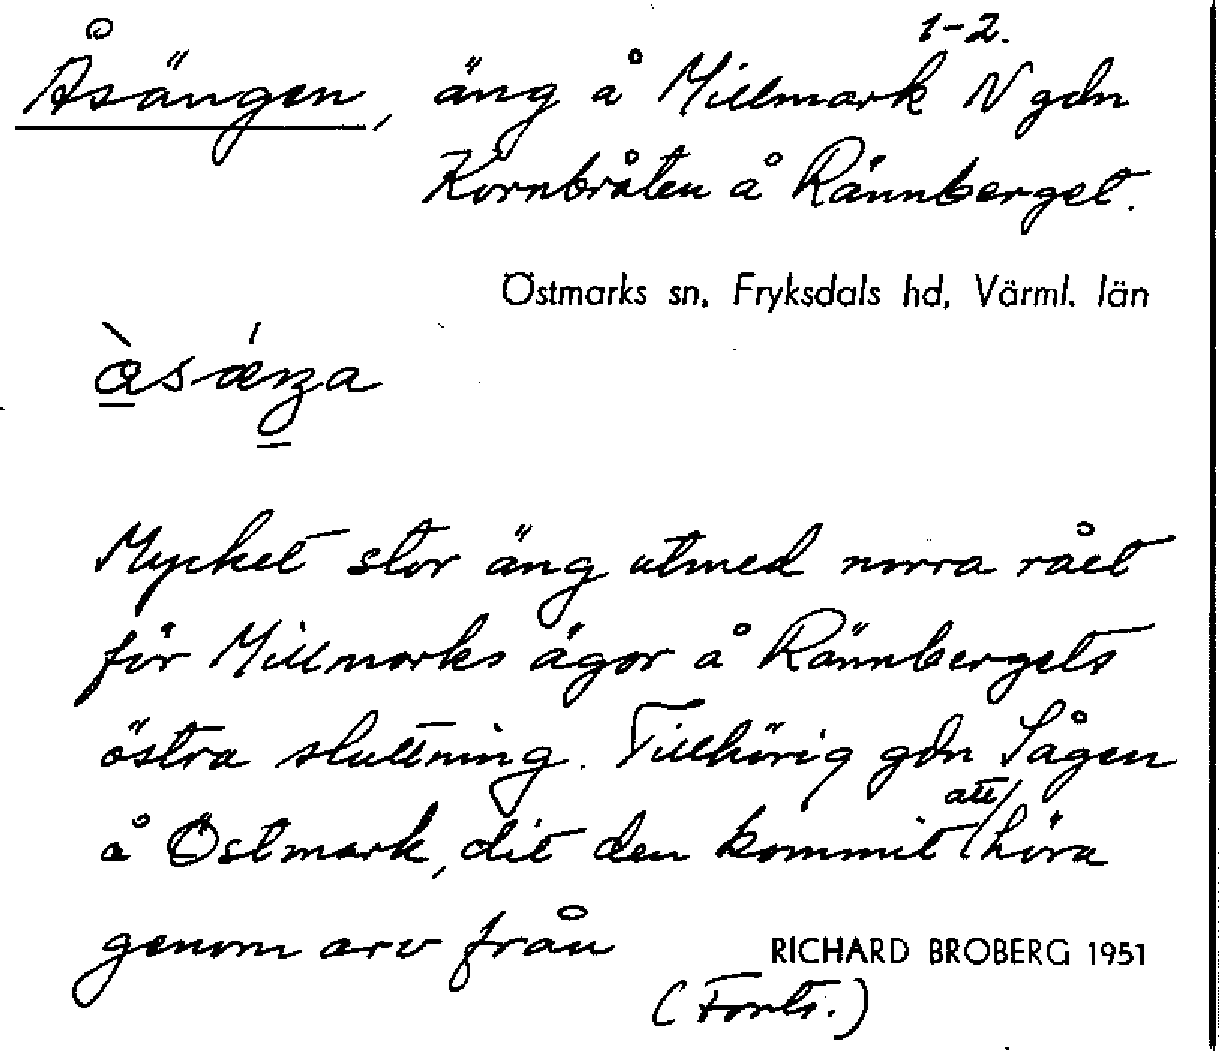 1-2.
Åsängen, äng å Millmark N gdn
Kornbråten å Rännberget.
Östmarks sn, Fryksdals hd, Värml. län
Mycket stor äng utmed norra rået
för Millmarks ägor å Rännbergets
östra sluttning. Tillhörig gdn Sågen
å Östmark, dit den kommit att höra
genom arv från
RICHARD BROBERG 1951
(Forts.)